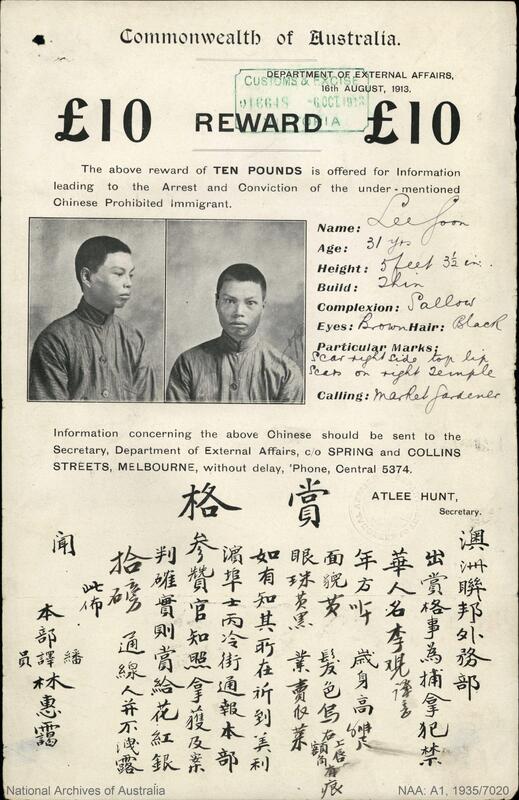 Commonwealth of Australia.
DEPARTMENT OF EXTERNAL AFFAIRS,
16TH AUGUST, 1913.
CUSTOMS & EXCISE
6 OCT 1913
£10 REWARD £10
The above reward of TEN POUNDS is offered for Information
leading to the Arrest and Conviction of the under-mentioned
Chinese Prohibited Immigrant.
Name: Lee Goon
Age: 31 yrs
Height: 5 feet 3½ in.
Build: Thin
Complexion: Sallow
Eyes: Brown Hair: Black
Particular Marks:
Scar right side top lip
Scars on right temple
Calling: Market Gardener
Information concerning the above Chinese should be sent to the
Secretary, Department of External Affairs, c/o SPRING and COLLINS
STREETS, MELBOURNE, without delay, 'Phone, Central 5374.
ATLEE HUNT,
Secretary.
賞格
澳洲聯邦外務部
出賞格事為捕拿犯禁
華人名李觀譯音
年方 歲身高
面貌黄 髮色烏 右上唇額角有痕
眼珠黄黑 業賣收菜
如有知其所在祈到美利
濵埠士丙冷街通報本部
参贊官知照拿獲及案
判確實則賞給花紅銀
拾磅 通線人并不洩露
此佈
聞
本部譯員繙林惠霭
National Archives of Australia
NAA: A1, 1935/7020